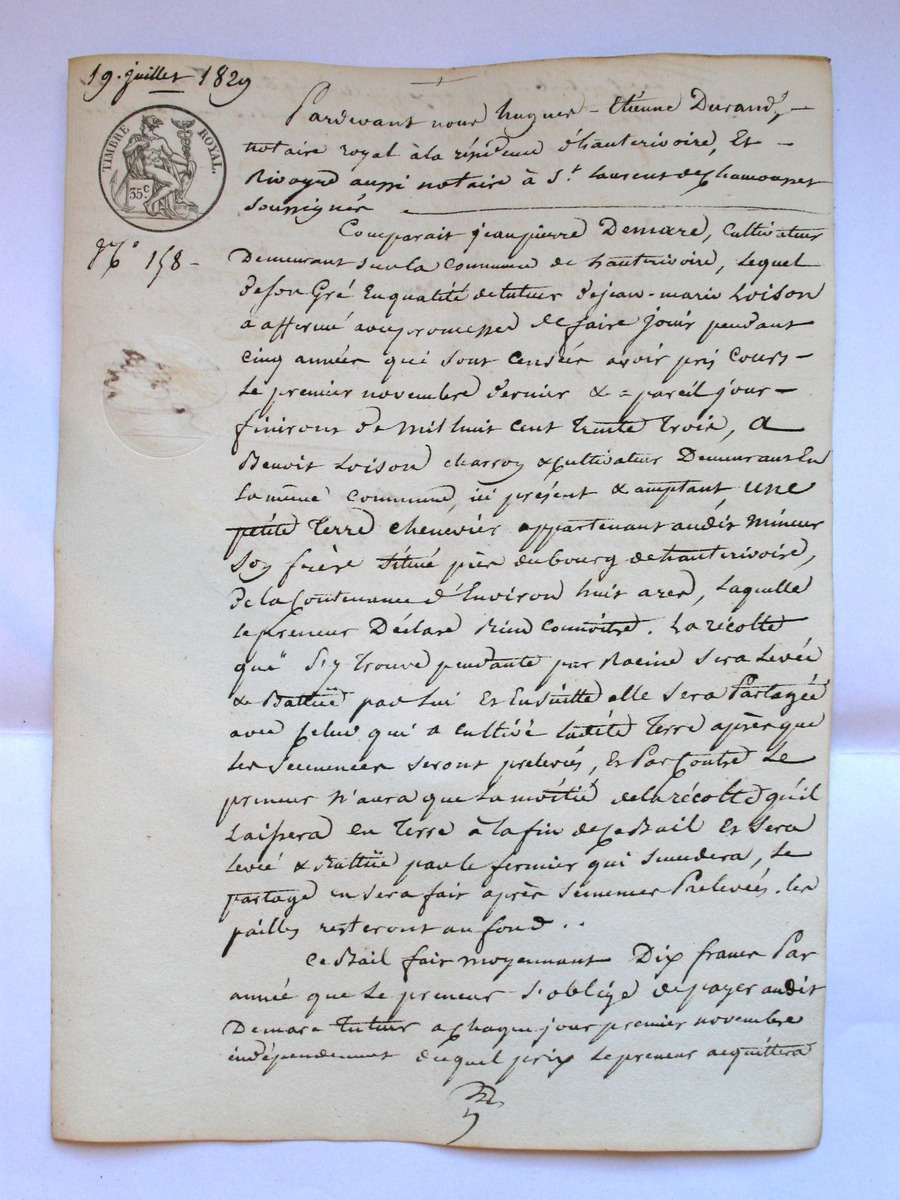 19. juillet 1829
TIMBRE ROYAL
35c
N.o 158 -
Pardevant nous hugues - Etienne Durand, -
notaire royal à la résidence d'hauterivoire, Et -
Rivoyre aussi notaire à St. Laurent de Chamousset
Soussignés
Comparait jean pierre Demare, Cultivateur
Demeurant sur la Commune de hauterivoire, Lequel
de son Gré En qualité de tuteur de jean-marie Loison
a affermé avec promesse de faire jouir pendant
cinq années qui sont Censées avoir pris Cours -
Le premier novembre dernier & = pareil jour -
finiront de mil huit cent trente trois, A
Benoit Loison charron & Cultivateur Demeurant En
La même Commune, ici présent & acceptant une
petite Terre chenevier appartenant audit Mineur
Son frère située près du bourg de hauterivoire,
de la Contenance d'Environ huit ares, Laquelle
le preneur Déclare Bien Connoitre. La récolte
qui S'y Trouve pendante par Racine Sera Levée
& Battüe par Lui Et Ensuitte elle Sera Partagée
avec Celui qui a Cultivé Ladite Terre après que
les Semences Seront prelevées, Et Par Contre Le
preneur N'aura que La moitié de la récolte qu'il
Laissera En Terre à la fin de Ce Bail Et Sera
Levée & Battüe par le fermier qui Succédera, Le
partage en Sera fait après Semences Prelevées. les
pailles resteront au fond . .
Ce Bail fait moyennant Dix francs Par
année que Le preneur S'oblige de payer audit
Demare Tuteur a Chaque jour premier novembre
indépendemment duquel prix Le preneur acquittera